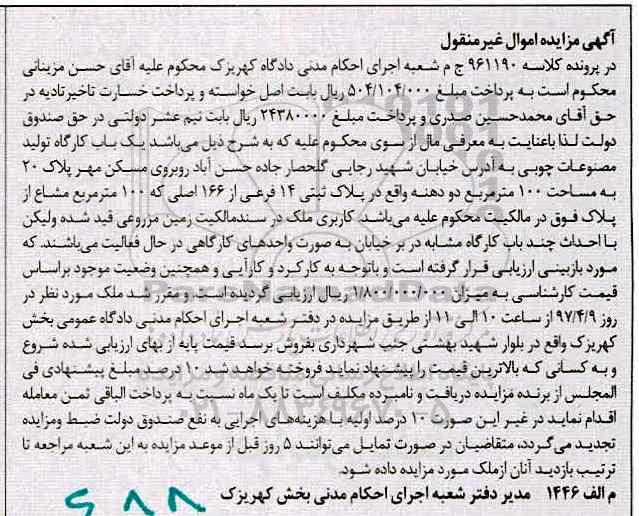 آگهی مزایده اموال غیرمنقول
در پرونده کلاسه ۹۶۱۱۹۰ ج م شعبه اجرای احکام مدنی دادگاه کهریزک محکوم علیه آقای حسن مزینانی
محکوم است به پرداخت مبلغ ۵۰۴/۱۰۴/۰۰۰ ریال بابت اصل خواسته و پرداخت خسارت تاخیرتادیه در
حق آقای محمدحسین صدری و پرداخت مبلغ ۲۴۳۸۰۰۰۰ ریال بابت نیم عشر دولتی در حق صندوق
دولت لذا باعنایت به معرفی مال از سوی محکوم علیه که به شرح ذیل می‌باشد یک باب کارگاه تولید
مصنوعات چوبی به آدرس خیابان شهید رجایی گلحصار جاده حسن آباد روبروی مسکن مهر پلاک ۲۰
به مساحت ۱۰۰ مترمربع دو دهنه واقع در پلاک ثبتی ۱۴ فرعی از ۱۶۶ اصلی که ۱۰۰ مترمربع مشاع از
پلاک فوق در مالکیت محکوم علیه می‌باشد. کاربری ملک در سندمالکیت زمین مزروعی قید شده ولیکن
با احداث چند باب کارگاه مشابه در بر خیابان به صورت واحدهای کارگاهی در حال فعالیت می‌باشند. که
مورد بازبینی ارزیابی قرار گرفته است و باتوجه به کارکرد و کارآیی و همچنین وضعیت موجود براساس
قیمت کارشناسی به میزان ۱/۸۰۰/۰۰۰/۰۰۰ ریال ارزیابی گردیده است. و مقرر شد ملک مورد نظر در
روز ۹۷/۴/۹ از ساعت ۱۰ الی ۱۱ از طریق مزایده در دفتر شعبه اجرای احکام مدنی دادگاه عمومی بخش
کهریزک واقع در بلوار شهید بهشتی جنب شهرداری بفروش برسد قیمت پایه از بهای ارزیابی شده شروع
و به کسانی که بالاترین قیمت را پیشنهاد نماید فروخته خواهد شد ۱۰ درصد مبلغ پیشنهادی فی
المجلس از برنده مزایده دریافت و نامبرده مکلف است تا یک ماه نسبت به پرداخت الباقی ثمن معامله
اقدام نماید در غیر این صورت ۱۰ درصد اولیه با هزینه‌های اجرایی به نفع صندوق دولت ضبط ومزایده
تجدید می‌گردد، متقاضیان در صورت تمایل می‌توانند ۵ روز قبل از موعد مزایده به این شعبه مراجعه تا
ترتیب بازدید آنان ازملک مورد مزایده داده شود.
م الف ۱۴۴۶ مدیر دفتر شعبه اجرای احکام مدنی بخش کهریزک
۶۸۸
ParsNamadData
۰۲۱-۸۸۳۴۹۶۷۰-۵